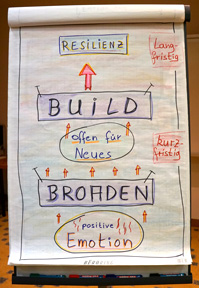 RESILIENZ
Lang-
fristig
BUILD
offen für
Neues
kurz-
fristig
BROADEN
positive
Emotion